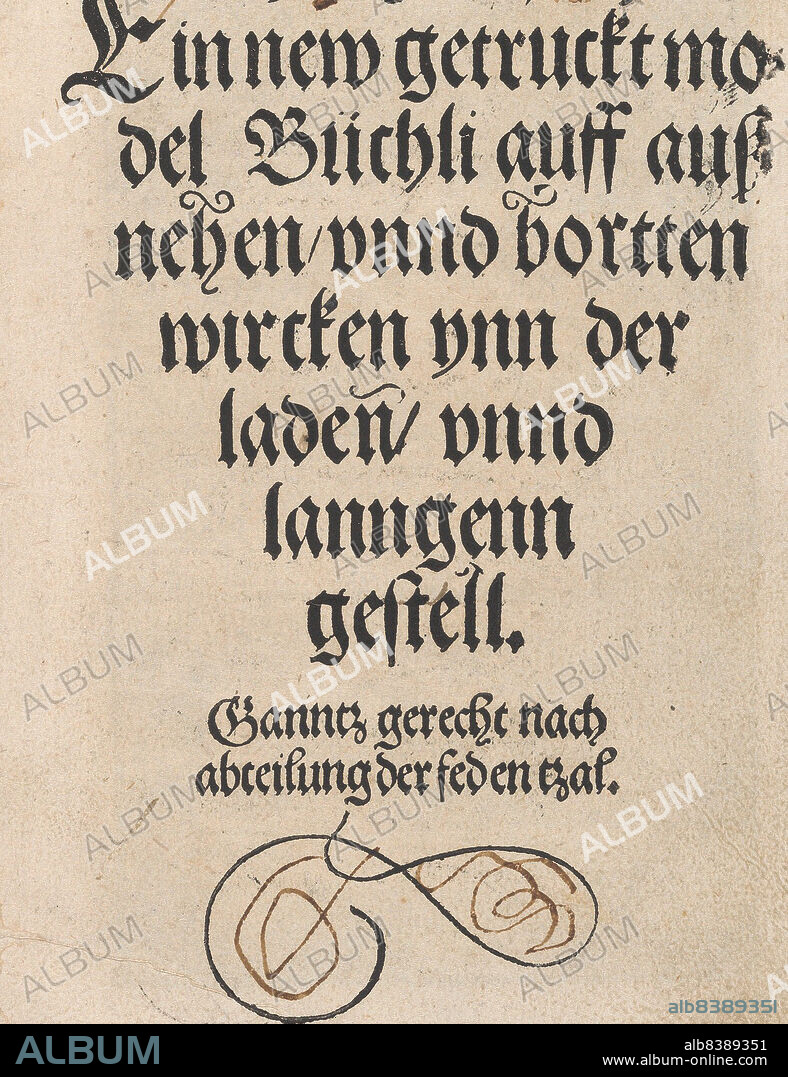 Ein new getruckt mo-
del Büchli auff auß
nehen/ vnnd bortten
wircken ynn der
laden̄/ vnnd
lanngenn
gestell.
Ganntz gerecht nach
abteilung der feden tzal.
ALBUM
alb8389351
ALBUM
alb8389351
www.album-online.com